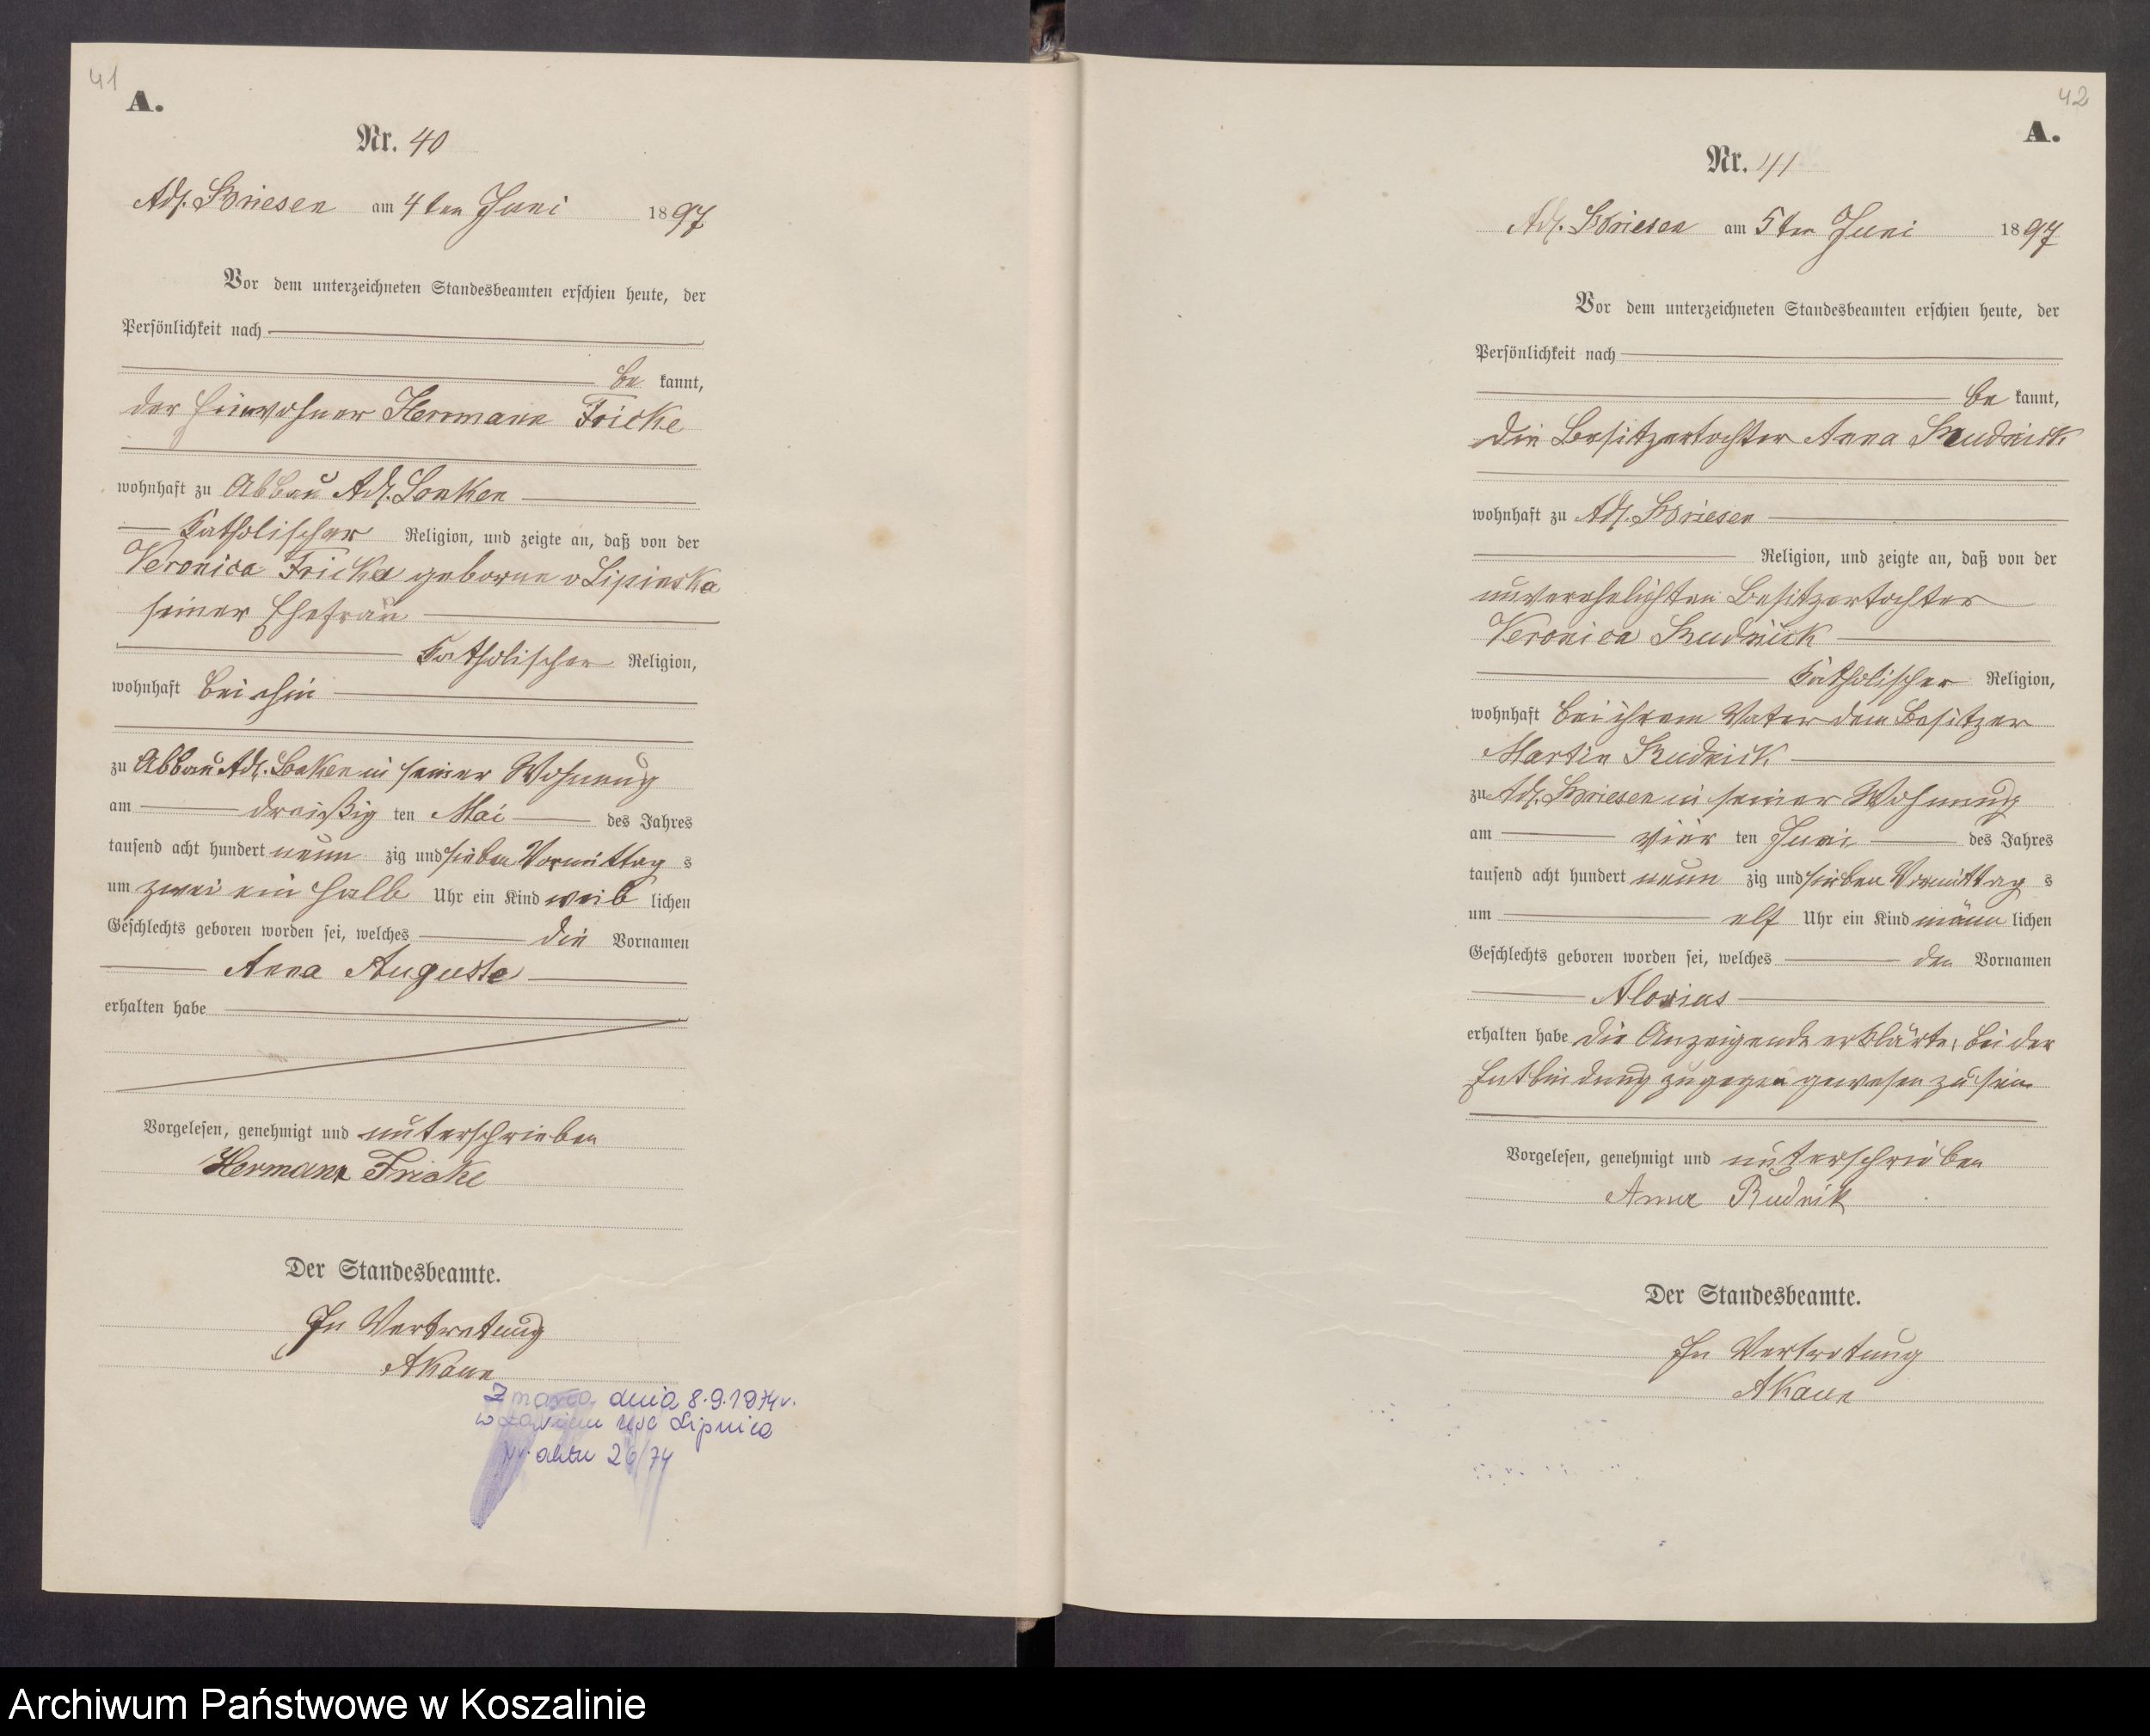 41
A.
Nr. 40
Adl. Briesen am 4ten Juni 1897
Vor dem unterzeichneten Standesbeamten erschien heute, der
Persönlichkeit nach
be kannt,
der Einwohner Herrmann Fricke
wohnhaft zu Abbau Adl. Lonken
Katholischer Religion, und zeigte an, daß von der
Veronica Fricke geborene v Lipinska
seiner Ehefrau
Katholischer Religion,
wohnhaft bei ihm
zu Abbau Adl. Lonken in seiner Wohnung
am dreißig ten Mai des Jahres
tausend acht hundert neun zig und sieben Vormittag s
um zwei ein halb Uhr ein Kind weib lichen
Geschlechts geboren worden sei, welches die Vornamen
Anna Auguste
erhalten habe
Vorgelesen, genehmigt und unterschrieben
Hermann Fricke
Der Standesbeamte.
In Vertretung
AKaun
Zmarła dnia 8.9.1974r.
w usc Lipnica
Nr aktu 26/74
42
A.
Nr. 41
Adl. Briesen am 5ten Juni 1897
Vor dem unterzeichneten Standesbeamten erschien heute, der
Persönlichkeit nach
be kannt,
die Besitzertochter Anna Rudnick
wohnhaft zu Adl. Briesen
Religion, und zeigte an, daß von der
unverehelichten Besitzertochter
Veronica Rudnick
Katholischer Religion,
wohnhaft bei ihrem Vater dem Besitzer
Martin Rudnick
zu Adl. Briesen in seiner Wohnung
am vier ten Juni des Jahres
tausend acht hundert neun zig und sieben Vormittag s
um elf Uhr ein Kind männ lichen
Geschlechts geboren worden sei, welches den Vornamen
Alosius
erhalten habe die Anzeigende erklärte, bei der
Entbindung zugegen gewesen zu sein
Vorgelesen, genehmigt und unterschrieben
Anna Rudnik
Der Standesbeamte.
In Vertretung
AKaun
Archiwum Państwowe w Koszalinie